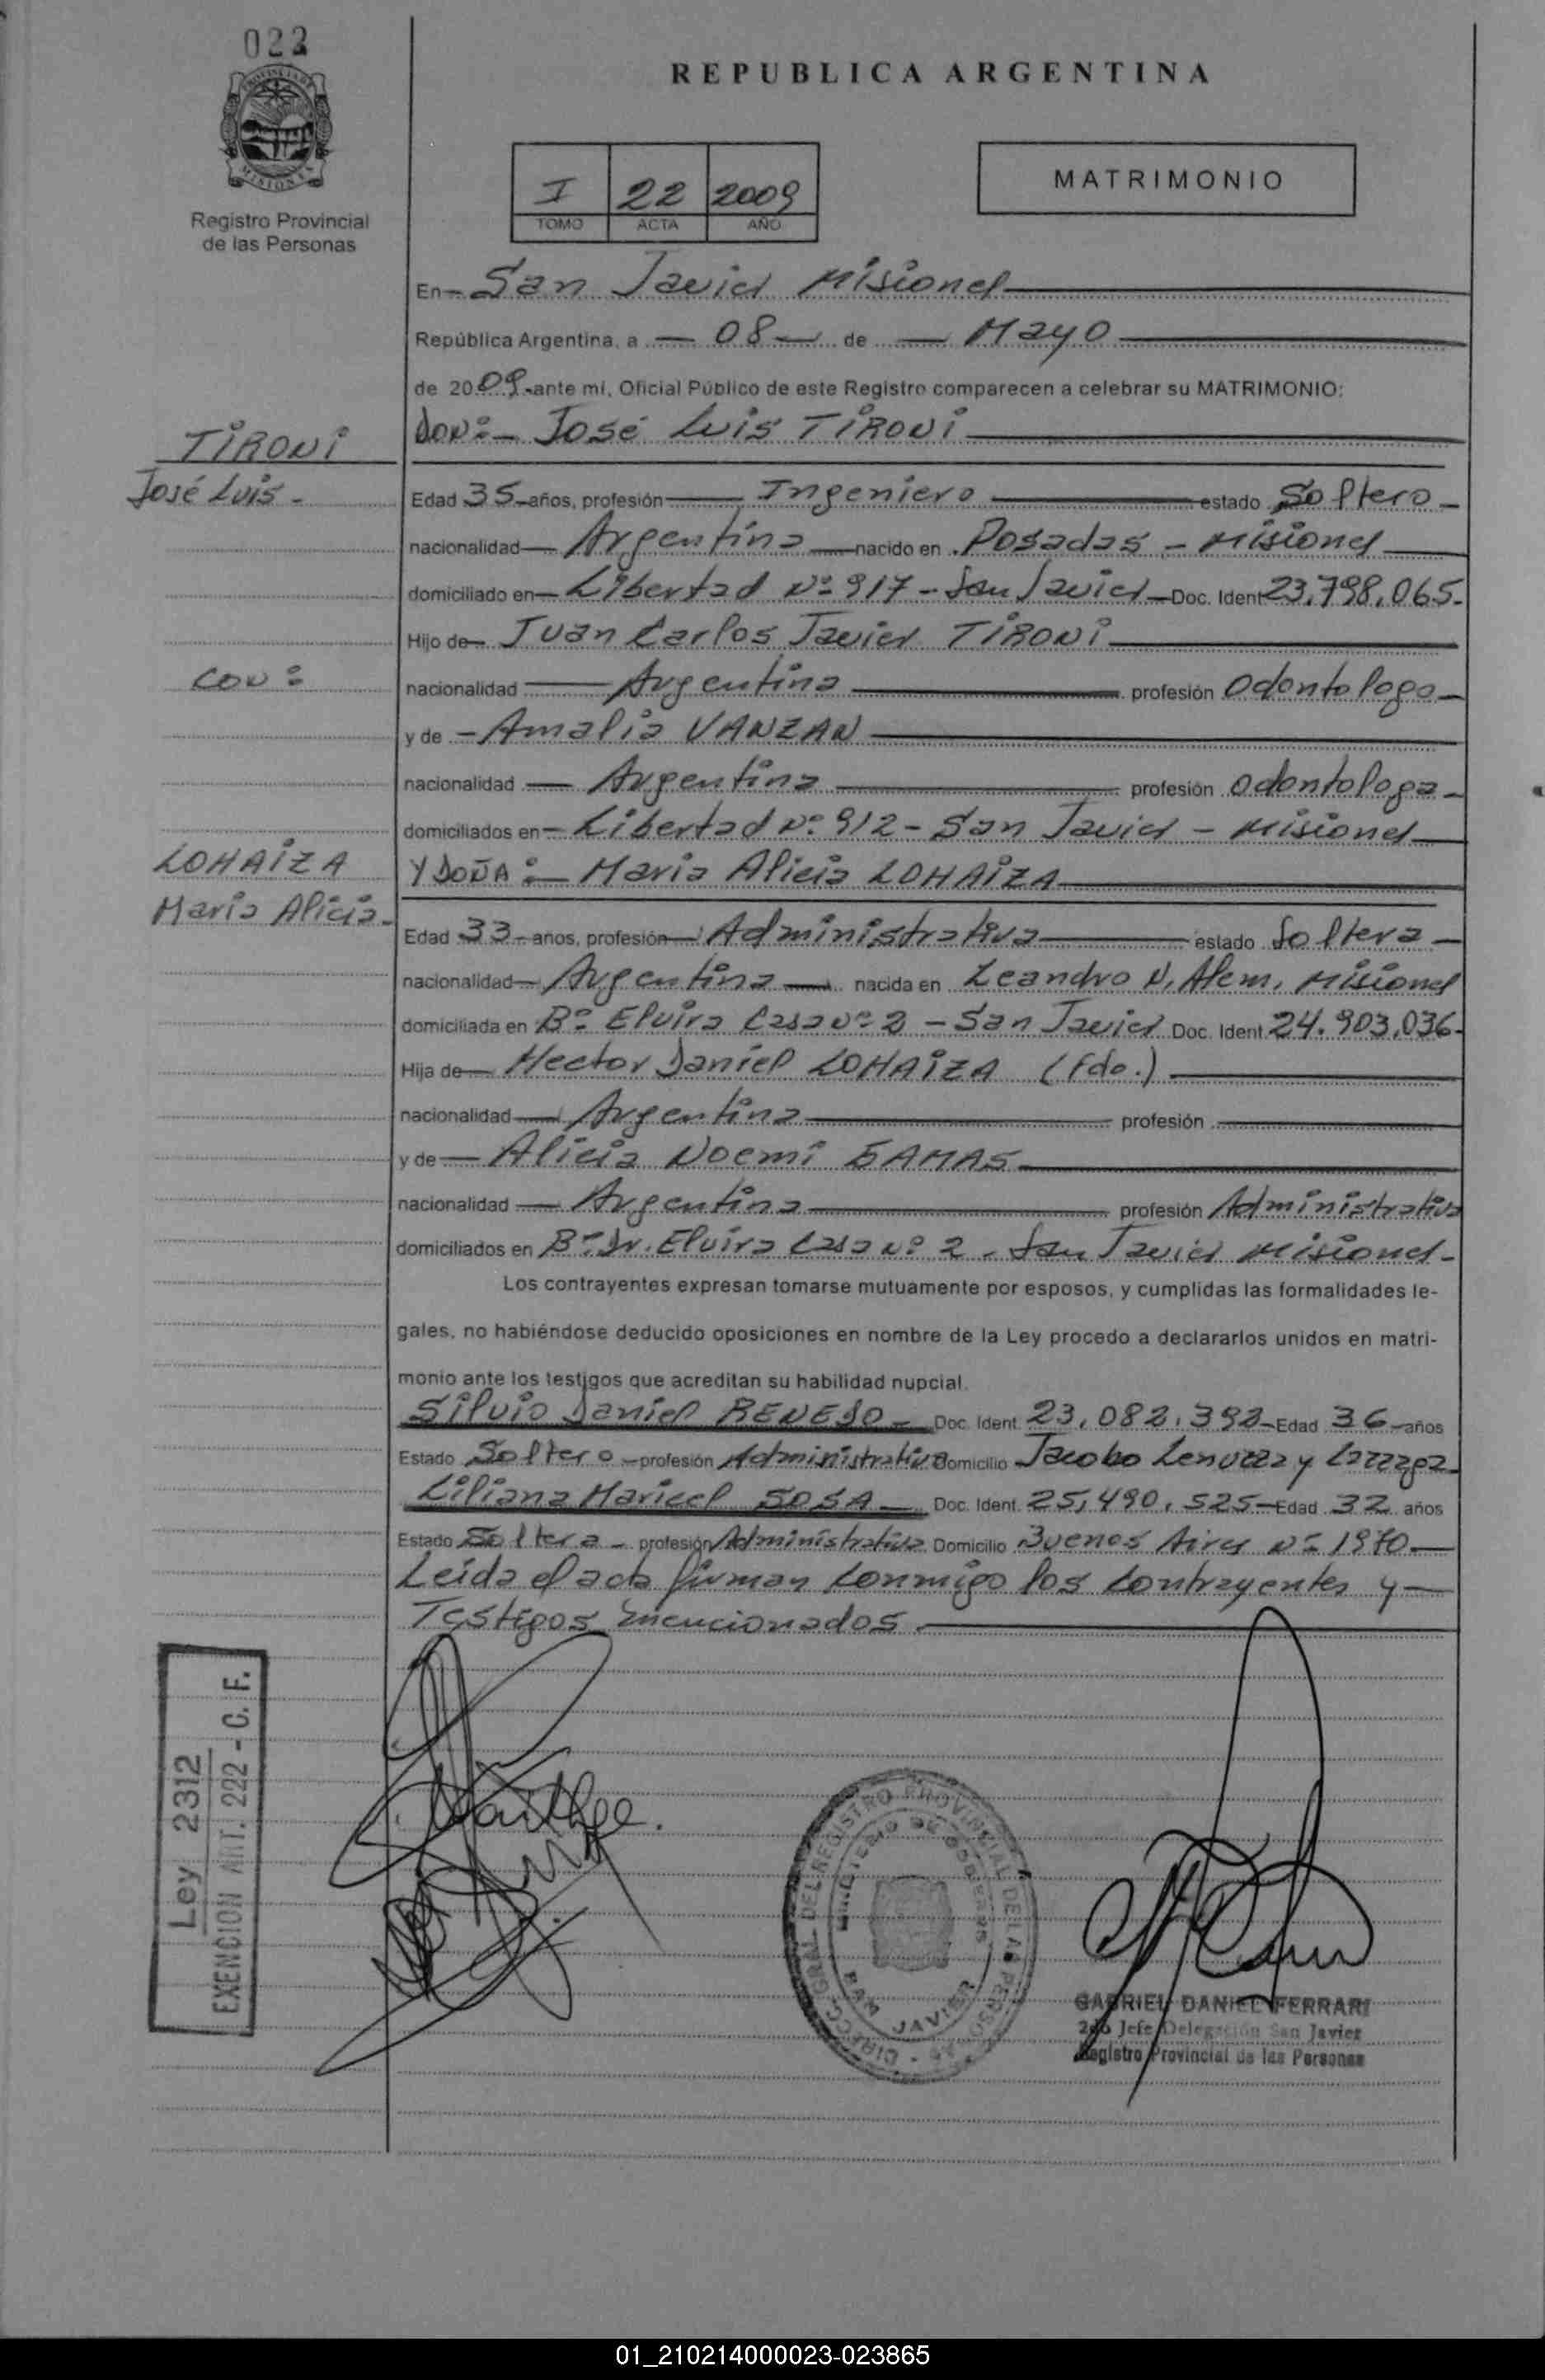 022
PROVINCIA DE
MISIONES
Registro Provincial
de las Personas
REPUBLICA ARGENTINA
I 22 2009
TOMO ACTA AÑO
MATRIMONIO
En San Javier Misiones
República Argentina, a 08 de Mayo
de 2009 ante mí, Oficial Público de este Registro comparecen a celebrar su MATRIMONIO:
TIRONI
José Luis.-
DON:- José Luis TIRONI
Edad 35 años, profesión Ingeniero estado Soltero
nacionalidad Argentina nacido en Posadas - Misiones
domiciliado en Libertad Nº 917 - San Javier Doc. Ident 23.798.065.
Hijo de Juan Carlos Javier TIRONI
CON:
nacionalidad Argentina profesión Odontologo
y de Amalia VANZAN
nacionalidad Argentina profesión Odontologa
domiciliados en Libertad Nº 912 - San Javier - Misiones
LOHAIZA
Maria Alicia.
Y DOÑA:- Maria Alicia LOHAIZA
Edad 33 años, profesión Administrativa estado Soltera
nacionalidad Argentina nacida en Leandro N. Alem, Misiones
domiciliada en Bº Elvira Casa Nº 2 - San Javier Doc. Ident. 24.903.036
Hija de Hector Daniel LOHAIZA (fdo.)
nacionalidad Argentina profesión
y de Alicia Noemi
nacionalidad Argentina profesión Administrativa
domiciliados en Bº Dr. Elvira Casa Nº 2 - San Javier Misiones
Los contrayentes expresan tomarse mutuamente por esposos, y cumplidas las formalidades le-
gales, no habiéndose deducido oposiciones en nombre de la Ley procedo a declararlos unidos en matri-
monio ante los testigos que acreditan su habilidad nupcial.
Silvio Daniel Doc. Ident. 23.082.392 Edad 36 años
Estado Soltero profesión Administrativo Domicilio Jacobo y
Liliana Maricel SOSA Doc. Ident. 25,490.525 Edad 32 años
Estado Soltera profesión Administrativa Domicilio Buenos Aires Nº 1970
Leida el acta firman conmigo los contrayentes y
Testigos mencionados
Ley 2312
EXENCION ART. 222 - C. F.
DIRECC. GRAL. DEL REGISTRO PROVINCIAL DE LAS PERSONAS
MINISTERIO DE GOBIERNO
SAN JAVIER
GABRIEL DANIEL FERRARI
2do Jefe Delegación San Javier
Registro Provincial de las Personas
01_210214000023-023865